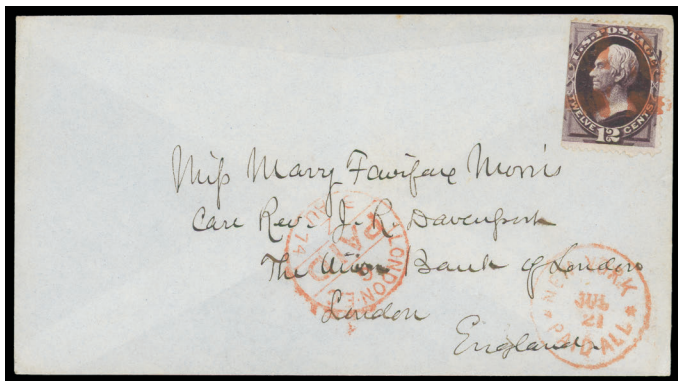 U.S. POSTAGE
TWELVE 12 CENTS
Miss Mary Fairfax Morris
Care Rev. J. R. Davenport
The Union Bank of London
London
England
LONDON
PAID
AU 74
NEW YORK
JUL
21
PAID ALL